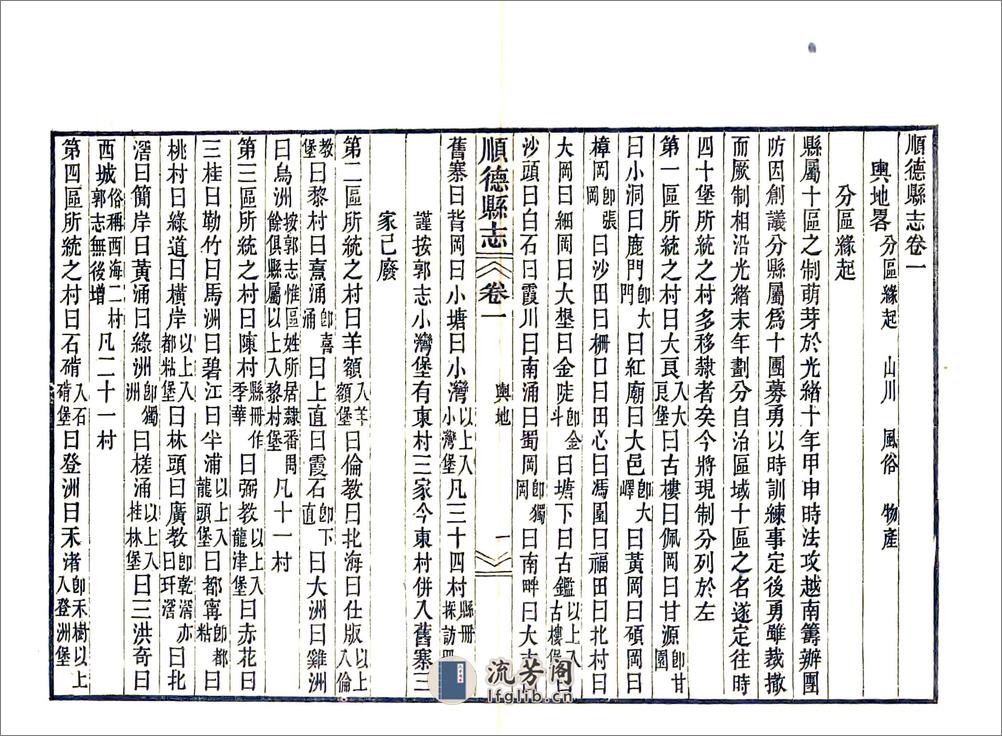 順德縣志卷一
輿地畧 分區緣起 山川 風俗 物產
分區緣起
縣屬十區之制萌芽於光緒十年甲申時法攻越南籌辦團
防因創議分縣屬爲十團募勇以時訓練事定後勇雖裁撤
而厥制相沿光緒末年劃分自治區域十區之名遂定往時
四十堡所統之村多移隸者矣今將現制分列於左
第一區所統之村曰大良入大良堡曰古樓曰佩岡曰甘源即甘園
曰小洞曰鹿門即大門曰紅廟曰大邑即大嶧曰黃岡曰碩岡曰
樟岡即張岡曰沙田曰柵口曰田心曰馮園曰福田曰北村曰
大岡曰細岡曰大壂曰金陡即金斗曰塘下曰古鑑以上入古樓堡曰
沙頭曰白石曰霞川曰南涌曰蜀岡即獨岡曰南畔曰大
順德縣志 卷一 輿地 一
舊寨曰背岡曰小塘曰小灣以上入小灣堡凡三十四村縣冊採訪冊
謹按郭志小灣堡有東村三家今東村併入舊寨三
家已廢
第二區所統之村曰羊額入羊額堡曰倫教曰北海曰仕版以上入倫教堡
曰黎村曰熹涌即喜涌曰上直曰霞石即下直曰大洲曰雞洲
曰烏洲按郭志惟區姓所居隸番禺餘俱縣屬以上入黎村堡凡十一村
第三區所統之村曰陳村縣冊作季華曰弼教以上入龍津堡曰赤花曰
三桂曰勒竹曰馬洲曰碧江曰半浦以上入龍頭堡曰都寗即都粘曰
桃村曰綠道曰橫岸以上入都粘堡曰林頭曰廣教即乾滘亦曰玕滘曰北
滘曰簡岸曰黃涌曰綠洲即獨洲曰槎涌以上入桂林堡曰三洪奇曰
西城俗稱西海二村郭志無後增凡二十一村
第四區所統之村曰石碏入石碏堡曰登洲曰禾渚即禾樹以上入登洲堡
流芳阁
lfglib.cn